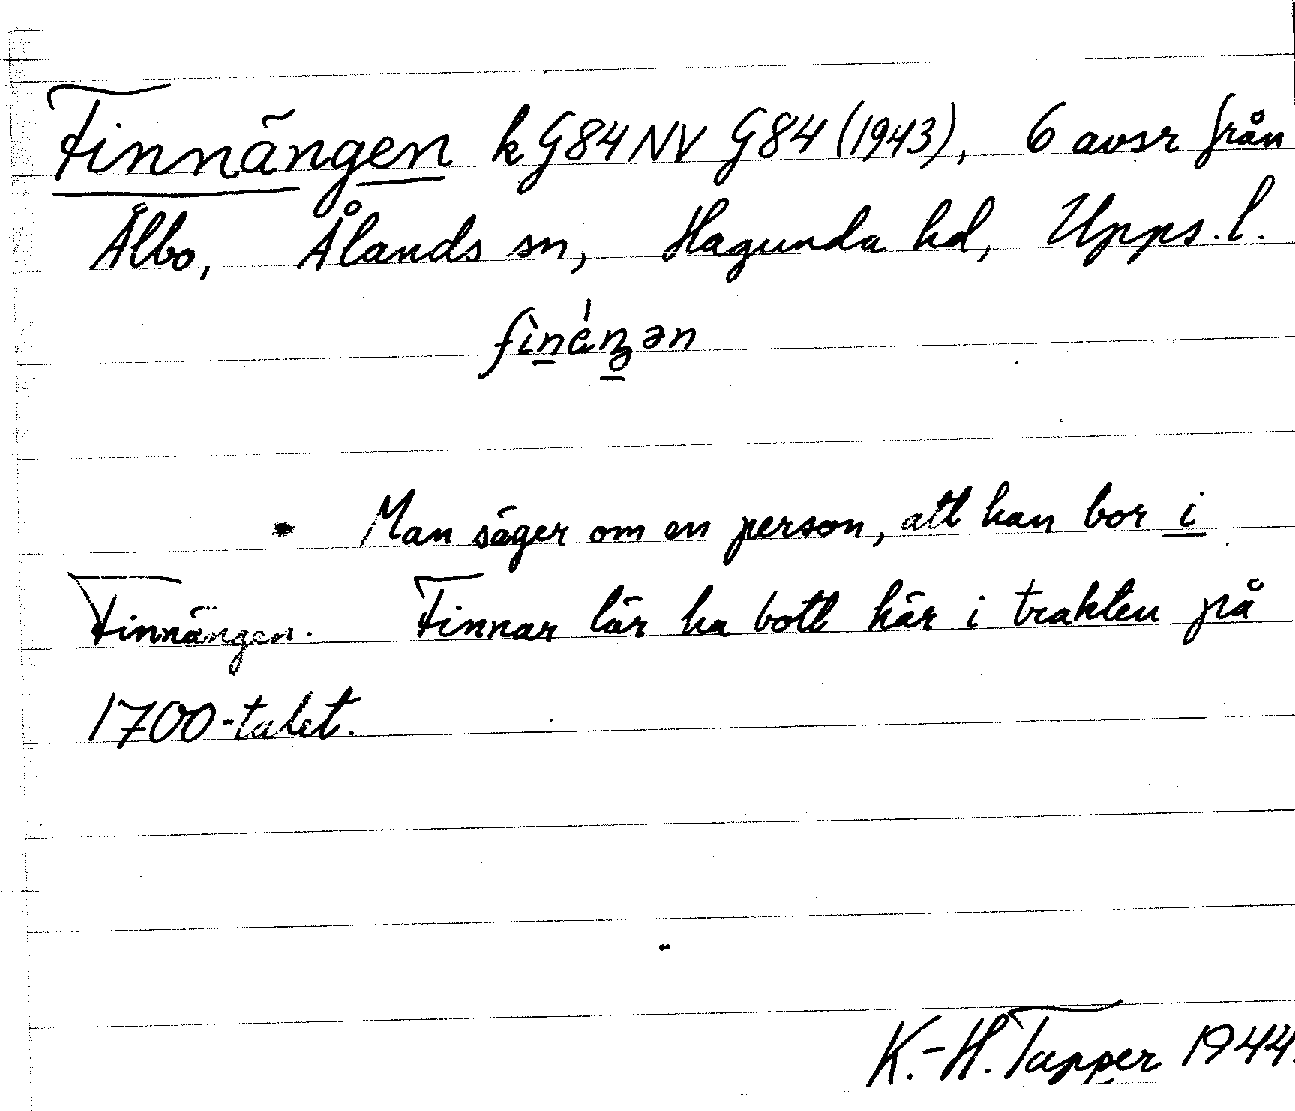 Finnängen k G84 NV G84 (1943), 6 avsr från
Ålbo, Ålands sn, Hagunda hd, Upps. l.
Man säger om en person, att han bor i
Finnängen. Finnar lär ha bott här i trakten på
1700-talet.
K.-H. Tapper 1944.